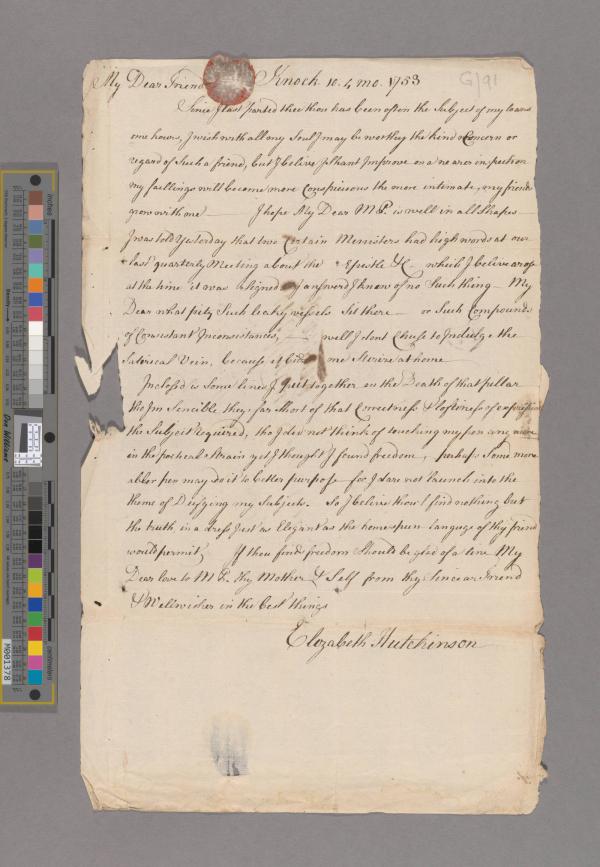 My Dear Friend Knock 10. 4 mo. 1753
G/91
Since I last parted thee thou has been often the Subject of my loans
ome hours, I wish with all my Soul I may be worthy the kind Concern or
regard of Such a friend, but I belive I shant Improve on a nearer inspection
my faillings will become more Conspicuous the more intimate, my friends
grow with me I hope My Dear M P. is well in all Shapes
I was told Yesterday that two Certain Ministers had high words at our
last quarterly Meeting about the Epistle &C which I belive arose
at the time it was Signed I answerd I know of no Such thing - My
Dear what pity Such leaky vessels Sit there - or Such Compounds
of Consistant Inconsistances, - will I dont Chuse to Indulge the
Satirical Vein, because it bids me Sivere at home
Inclosd is Some lines I put together on the Death of that pillar
tho Im Sencible they far Short of that Correctness & loftiness of expression
the Subject required, tho I der not think of touching my pen any more
in the poetical Strain yet I thought I found freedom, perhaps Some more
abler pen may do it to better purpose for I dare not launch into the
theme of Deifying my Subjects. So I belive thou'l find nothing but
the truth in a dress Just as Elegant as the home spun language of thy friend
would permit, If thou finds freedom Should be glad of a line My
Dear love to M P. thy Mother & Self from thy Sincear Friend
& Wellwisher in the best things
Elizabeth Hutchinson
inches
centimeters
Don Williams
M001378